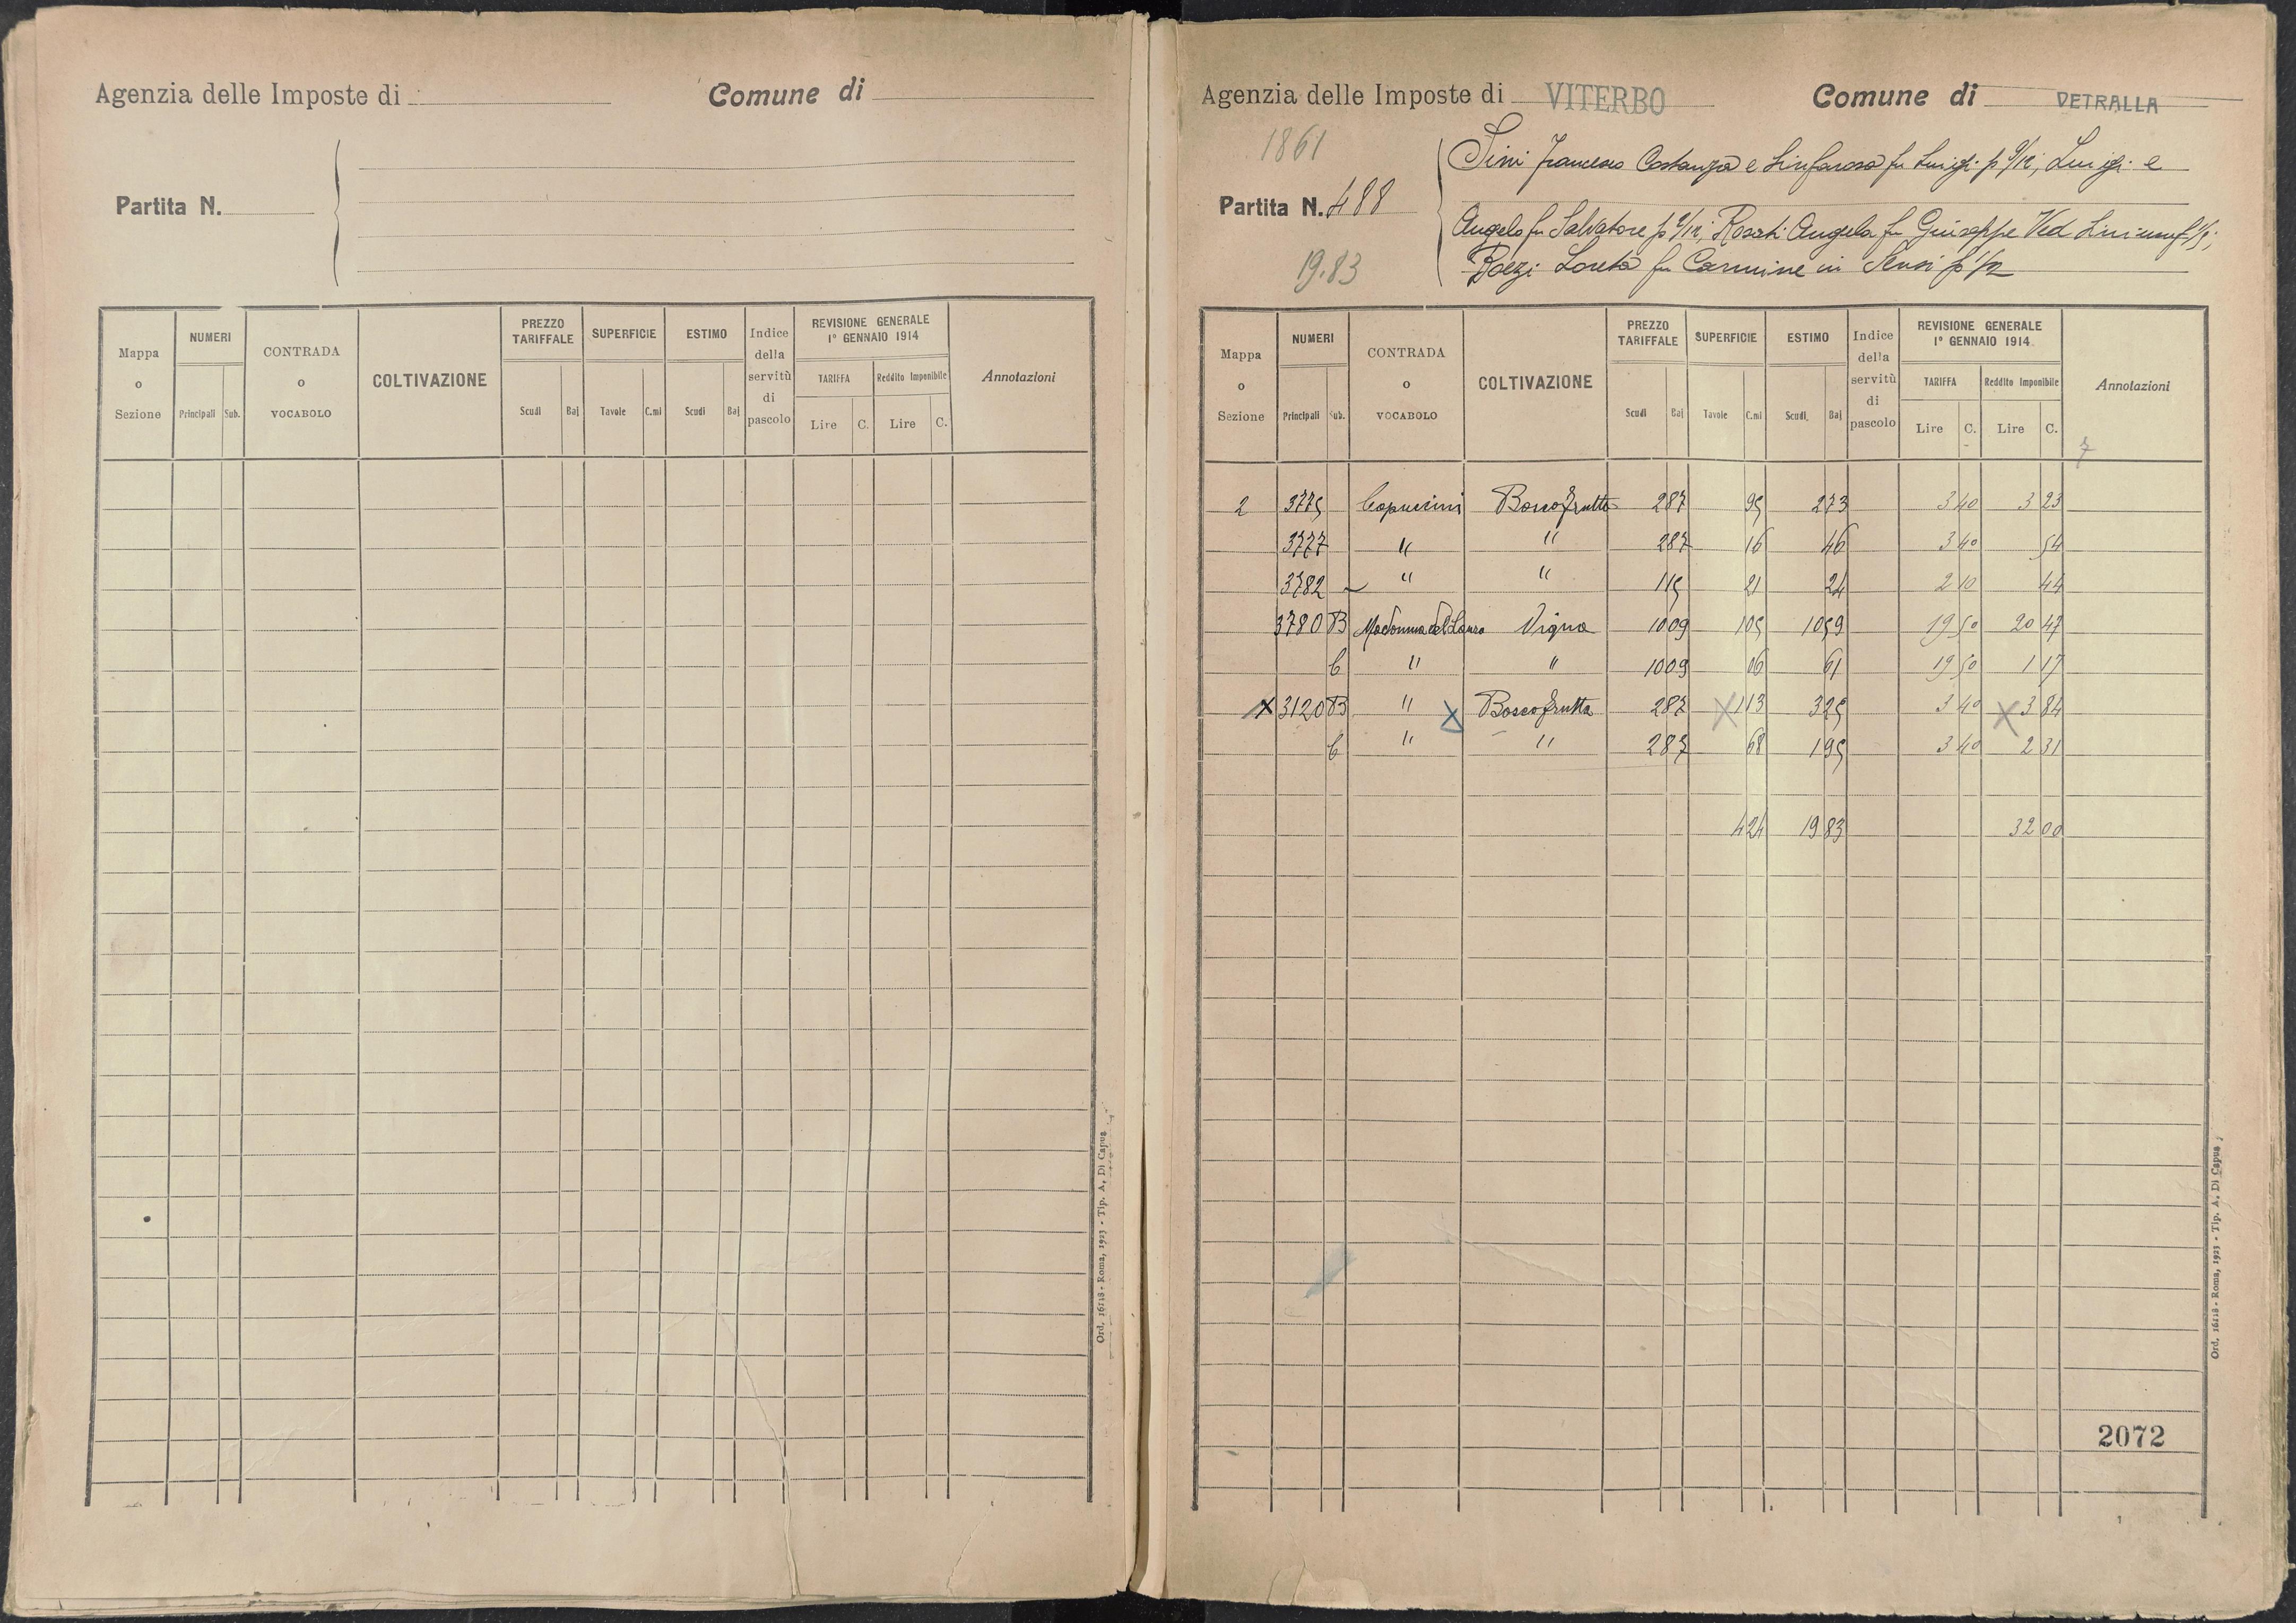 Agenzia delle Imposte di
Comune di
Partita N.
Mappa o Sezione
NUMERI
Principali Sub.
CONTRADA o VOCABOLO
COLTIVAZIONE
PREZZO TARIFFALE
Scudi Baj
SUPERFICIE
Tavole C.mi
ESTIMO
Scudi Baj
Indice della servitù di pascolo
REVISIONE GENERALE 1° GENNAIO 1914
TARIFFA Reddito Imponibile
Lire C. Lire C.
Annotazioni
Ord. 16118 - Roma, 1923 - Tip. A. Di Capua
Agenzia delle Imposte di VITERBO
Comune di VETRALLA
1861
Partita N. 488
19.83
Sini Francesco Costanza e Sinfarosa fu Luigi p 9/12, Luigi e
Angelo fu Salvatore p 2/12, Rosati Angela fu Giuseppe Ved Sini
Loreta fu Carmine in Sensi p 1/12
Mappa o Sezione
NUMERI
Principali Sub.
CONTRADA o VOCABOLO
COLTIVAZIONE
PREZZO TARIFFALE
Scudi Baj
SUPERFICIE
Tavole C.mi
ESTIMO
Scudi Baj
Indice della servitù di pascolo
REVISIONE GENERALE 1° GENNAIO 1914
TARIFFA Reddito Imponibile
Lire C. Lire C.
Annotazioni
7
2 3775 Capuccini Bosco frutto 287 95 273 3 40 3 23
3777 " " 287 16 46 3 40 54
3782 " " 115 21 24 2 10 44
3780 B Madonna del Lauro Vigna 1009 105 1059 19 50 20 47
C " " 1009 06 61 19 50 1 17
X 3120 B " X Bosco frutto 287 X 113 325 3 40 X 3 84
C " " 287 68 195 3 40 2 31
424 19 83 32 00
2072
Ord. 16118 - Roma, 1923 - Tip. A. Di Capua